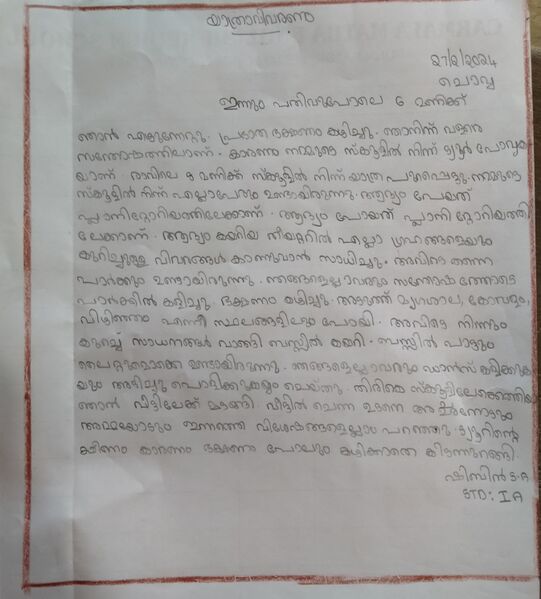 യാത്രാവിവരണം
27/2/2024
ചൊവ്വ
ഇന്നും പതിവുപോലെ 6 മണിക്ക്
ഞാൻ എഴുന്നേറ്റു. പ്രഭാത ഭക്ഷണം കഴിച്ചു. ഞാനിന്ന് വളരെ
സന്തോഷത്തിലാണ്. കാരണം നമ്മുടെ സ്കൂളിൽ നിന്ന് ട്യൂർ പോവുക
യാണ്. രാവിലെ 8 മണിക്ക് സ്കൂളിൽ നിന്ന് യാത്ര പുറപ്പെട്ടു. നമ്മുടെ
സ്കൂളിൽ നിന്ന് എല്ലാപേരും ഉണ്ടായിരുന്നു. ആദ്യം പോയത്
പ്ലാനിറ്റോറിയത്തിലേക്കാണ്. ആദ്യം പോയത് പ്ലാനിറ്റോറിയത്തി
ലേക്കാണ്. ആദ്യം കയറിയ തീയറ്ററിൽ എല്ലാ ഗ്രഹങ്ങളെയും
കുറിച്ചുള്ള വിവരങ്ങൾ കാണുവാൻ സാധിച്ചു. അവിടെ തന്നെ
പാർക്കും ഉണ്ടായിരുന്നു. ഞങ്ങളെല്ലാവരും സന്തോഷത്തോടെ
പാർക്കിൽ കളിച്ചു. ഭക്ഷണം കഴിച്ചു. അടുത്ത് മൃഗശാല, കോവളം,
വിഴിഞ്ഞം എന്നീ സ്ഥലങ്ങളിലും പോയി. അവിടെ നിന്നും
കുറച്ച് സാധനങ്ങൾ വാങ്ങി ബസ്സിൽ കയറി. ബസ്സിൽ പാട്ടും
ലൈറ്റുമൊക്കെ ഉണ്ടായിരുന്നു. ഞങ്ങളെല്ലാവരും ഡാൻസ് കളിക്കുക
യും അടിച്ചു പൊളിക്കുകയും ചെയ്തു. തിരികെ സ്കൂളിലേക്കെത്തി
ഞാൻ വീട്ടിലേക്ക് മടങ്ങി. വീട്ടിൽ ചെന്ന ഉടനെ അച്ഛനോടും
അമ്മയോടും ഇന്നത്തെ വിശേഷങ്ങളെല്ലാം പറഞ്ഞു. ട്യൂറിന്റെ
ക്ഷീണം കാരണം ഭക്ഷണം പോലും കഴിക്കാതെ കിടന്നുറങ്ങി.
ഷിബിൻ S.A
STD: I A